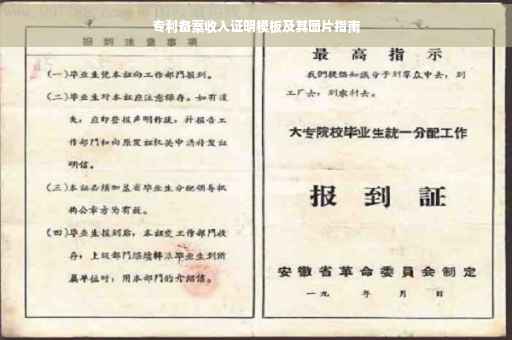 专利备案收入证明模板及其图片指南
报到注意事项
(一)毕业生凭本证向工作部门报到。
(二)毕业生对本证应注意保存。如有遗
失，应即登报声明作废，并报告工
作部门和向原发证机关申请补发证
明信。
(三)本证必须加盖省毕业生分配领导机
构公章方为有效。
(四)毕业生报到后，本证交工作部门收
存；上级部门继续转派毕业生到所
属单位时，用本部门的介绍信。
最高指示
我们提倡知识分子到群众中去，到
工厂去，到农村去。
大专院校毕业生统一分配工作
报到证
安徽省革命委员会制定
一九 年 月 日